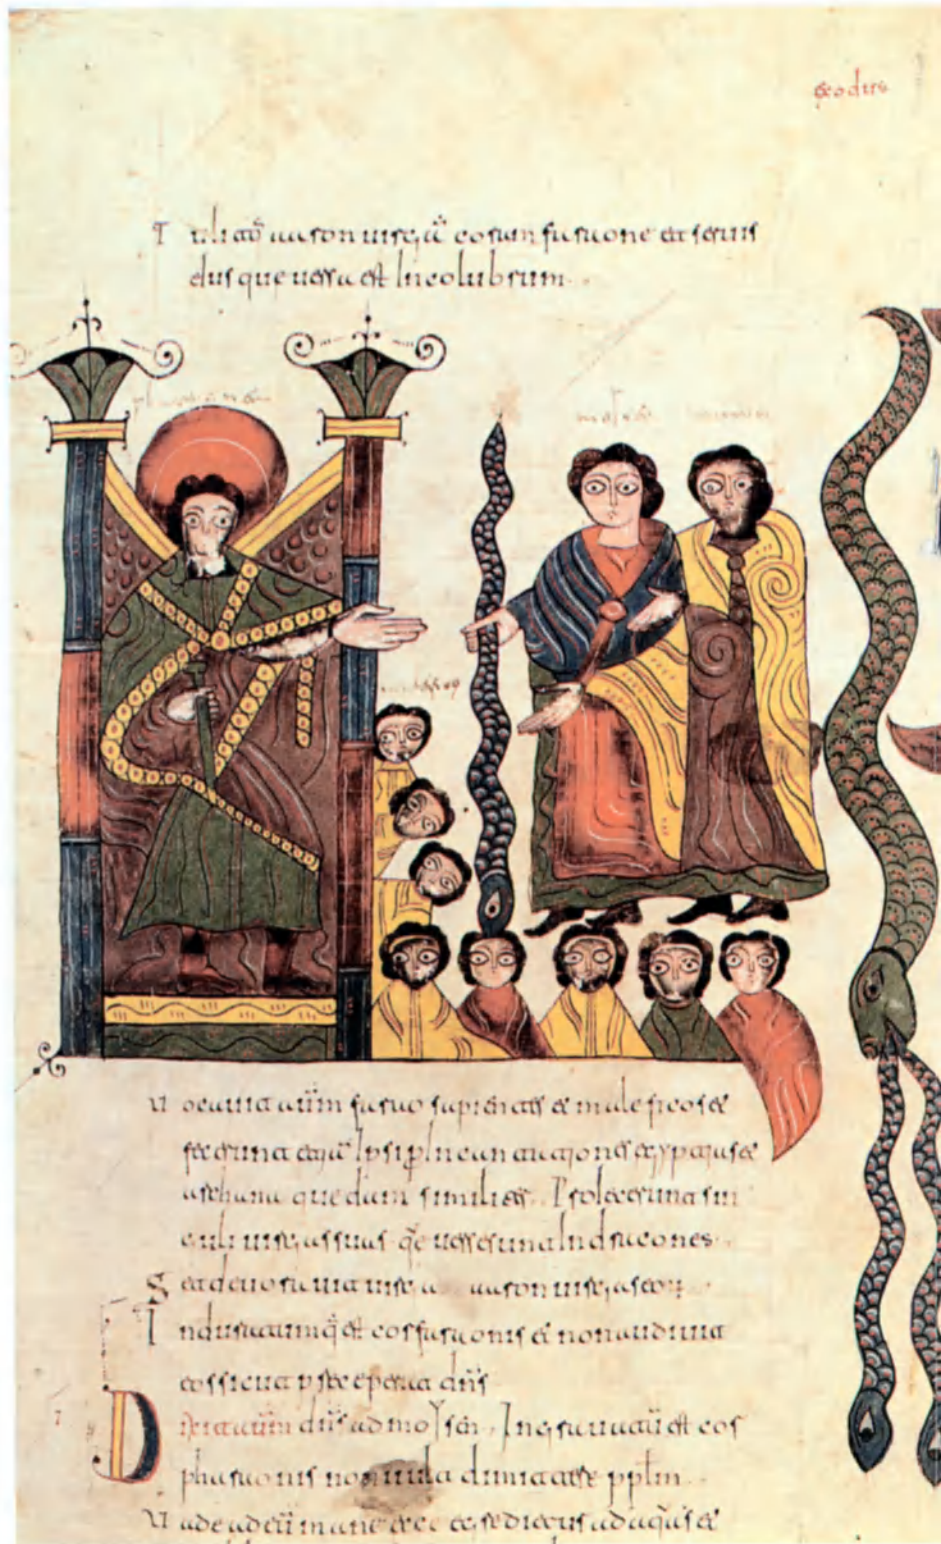 exodus
Tulitq aaron uirgā coram faraone et seruis
eius que uersa est In colubrum
moyses
Uocauit aūm farao sapientes et maleficos et
fecerunt etiā Ipsi p Incantationes egyptias et
archana quedam similiter. Proiecerunt sin
guli uirgas suas qe uerse sunt In dracones
Sed deuorauit uirga aaron uirgas eor
Induratumq est cor faraonis et non audiuit
eos sicut p̄ceperat dn̄s
Dixit aūm dn̄s ad moysen. Ingrauatū est cor
pharaonis non uult dimittere pplm
Uade ad eū mane ecce egredietur ad aquas et